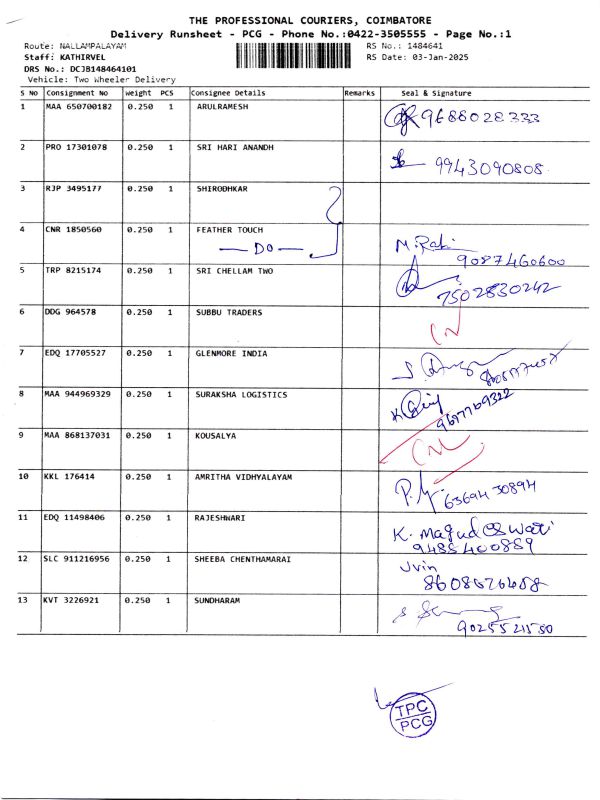 THE PROFESSIONAL COURIERS, COIMBATORE
Delivery Runsheet - PCG - Phone No.:0422-3505555 - Page No.:1
Route: NALLAMPALAYAM RS No.: 1484641
Staff: KATHIRVEL RS Date: 03-Jan-2025
DRS No.: DCJB148464101
Vehicle: Two Wheeler Delivery
S No Consignment No Weight PCS Consignee Details Remarks Seal & Signature
1 MAA 650700182 0.250 1 ARULRAMESH 9688028333
2 PRO 17301078 0.250 1 SRI HARI ANANDH 9943090808
3 RJP 3495177 0.250 1 SHIRODHKAR
4 CNR 1850560 0.250 1 FEATHER TOUCH
— DO — M. 9087460600
5 TRP 8215174 0.250 1 SRI CHELLAM TWO 7502830242
6 DDG 964578 0.250 1 SUBBU TRADERS
7 EDQ 17705527 0.250 1 GLENMORE INDIA
8 MAA 944969329 0.250 1 SURAKSHA LOGISTICS 9677769322
9 MAA 868137031 0.250 1 KOUSALYA
10 KKL 176414 0.250 1 AMRITHA VIDHYALAYAM 6369430894
11 EDQ 11498406 0.250 1 RAJESHWARI K. Magudeswati
9488400889
12 SLC 911216956 0.250 1 SHEEBA CHENTHAMARAI Jvin
8608676458
13 KVT 3226921 0.250 1 SUNDHARAM
9025521550
TPC
PCG